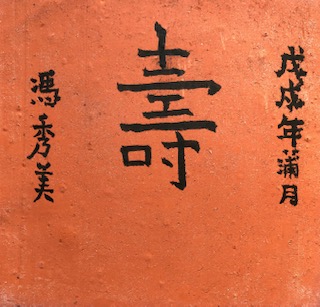 戊戌年蒲月
壽
馮秀美